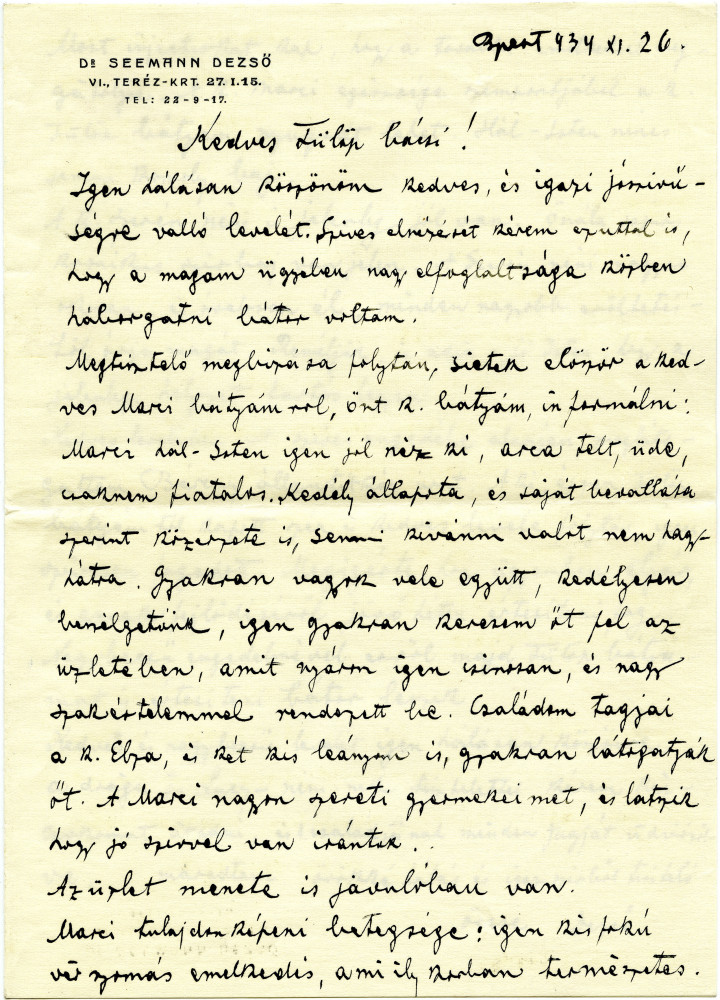 Bpest 934 XI. 26.
DR SEEMANN DEZSŐ
VI., TERÉZ-KRT. 27. I. 15.
TEL: 22-9-17.
Kedves Fülöp bácsi!
Igen hálásan köszönöm kedves, és igazi jószivű-
ségre valló levelét. Szives elnézését kérem ezuttal is,
hogy a magam ügyében nagy elfoglaltsága közben
háborgatni bátor voltam.
Megtisztelő megbizása folytán, sietek először a ked-
ves Marci bátyámról, önt k. bátyám, informálni:
Marci hál-Isten igen jól néz ki, arca telt, üde,
csaknem fiatalos. Kedély állapota, és saját bevallása
szerint közérzete is, semmi kivánni valót nem hagy
hátra. Gyakran vagyok vele együtt, kedélyesen
beszélgetünk, igen gyakran keresem őt fel az
üzletében, amit nyáron igen csinosan, és nagy
szakértelemmel rendezett be. Családom tagjai
a k. Elza, és két kis leányom is, gyakran látogatják
őt. A Marci nagyon szereti gyermekeimet, és látszik
hogy jó szivvel van irántok.
Az üzlet menete is javulóban van.
Marci tulajdonképeni betegsége: igen kis fokú
vérnyomás emelkedés, a mi ily korban természetes.